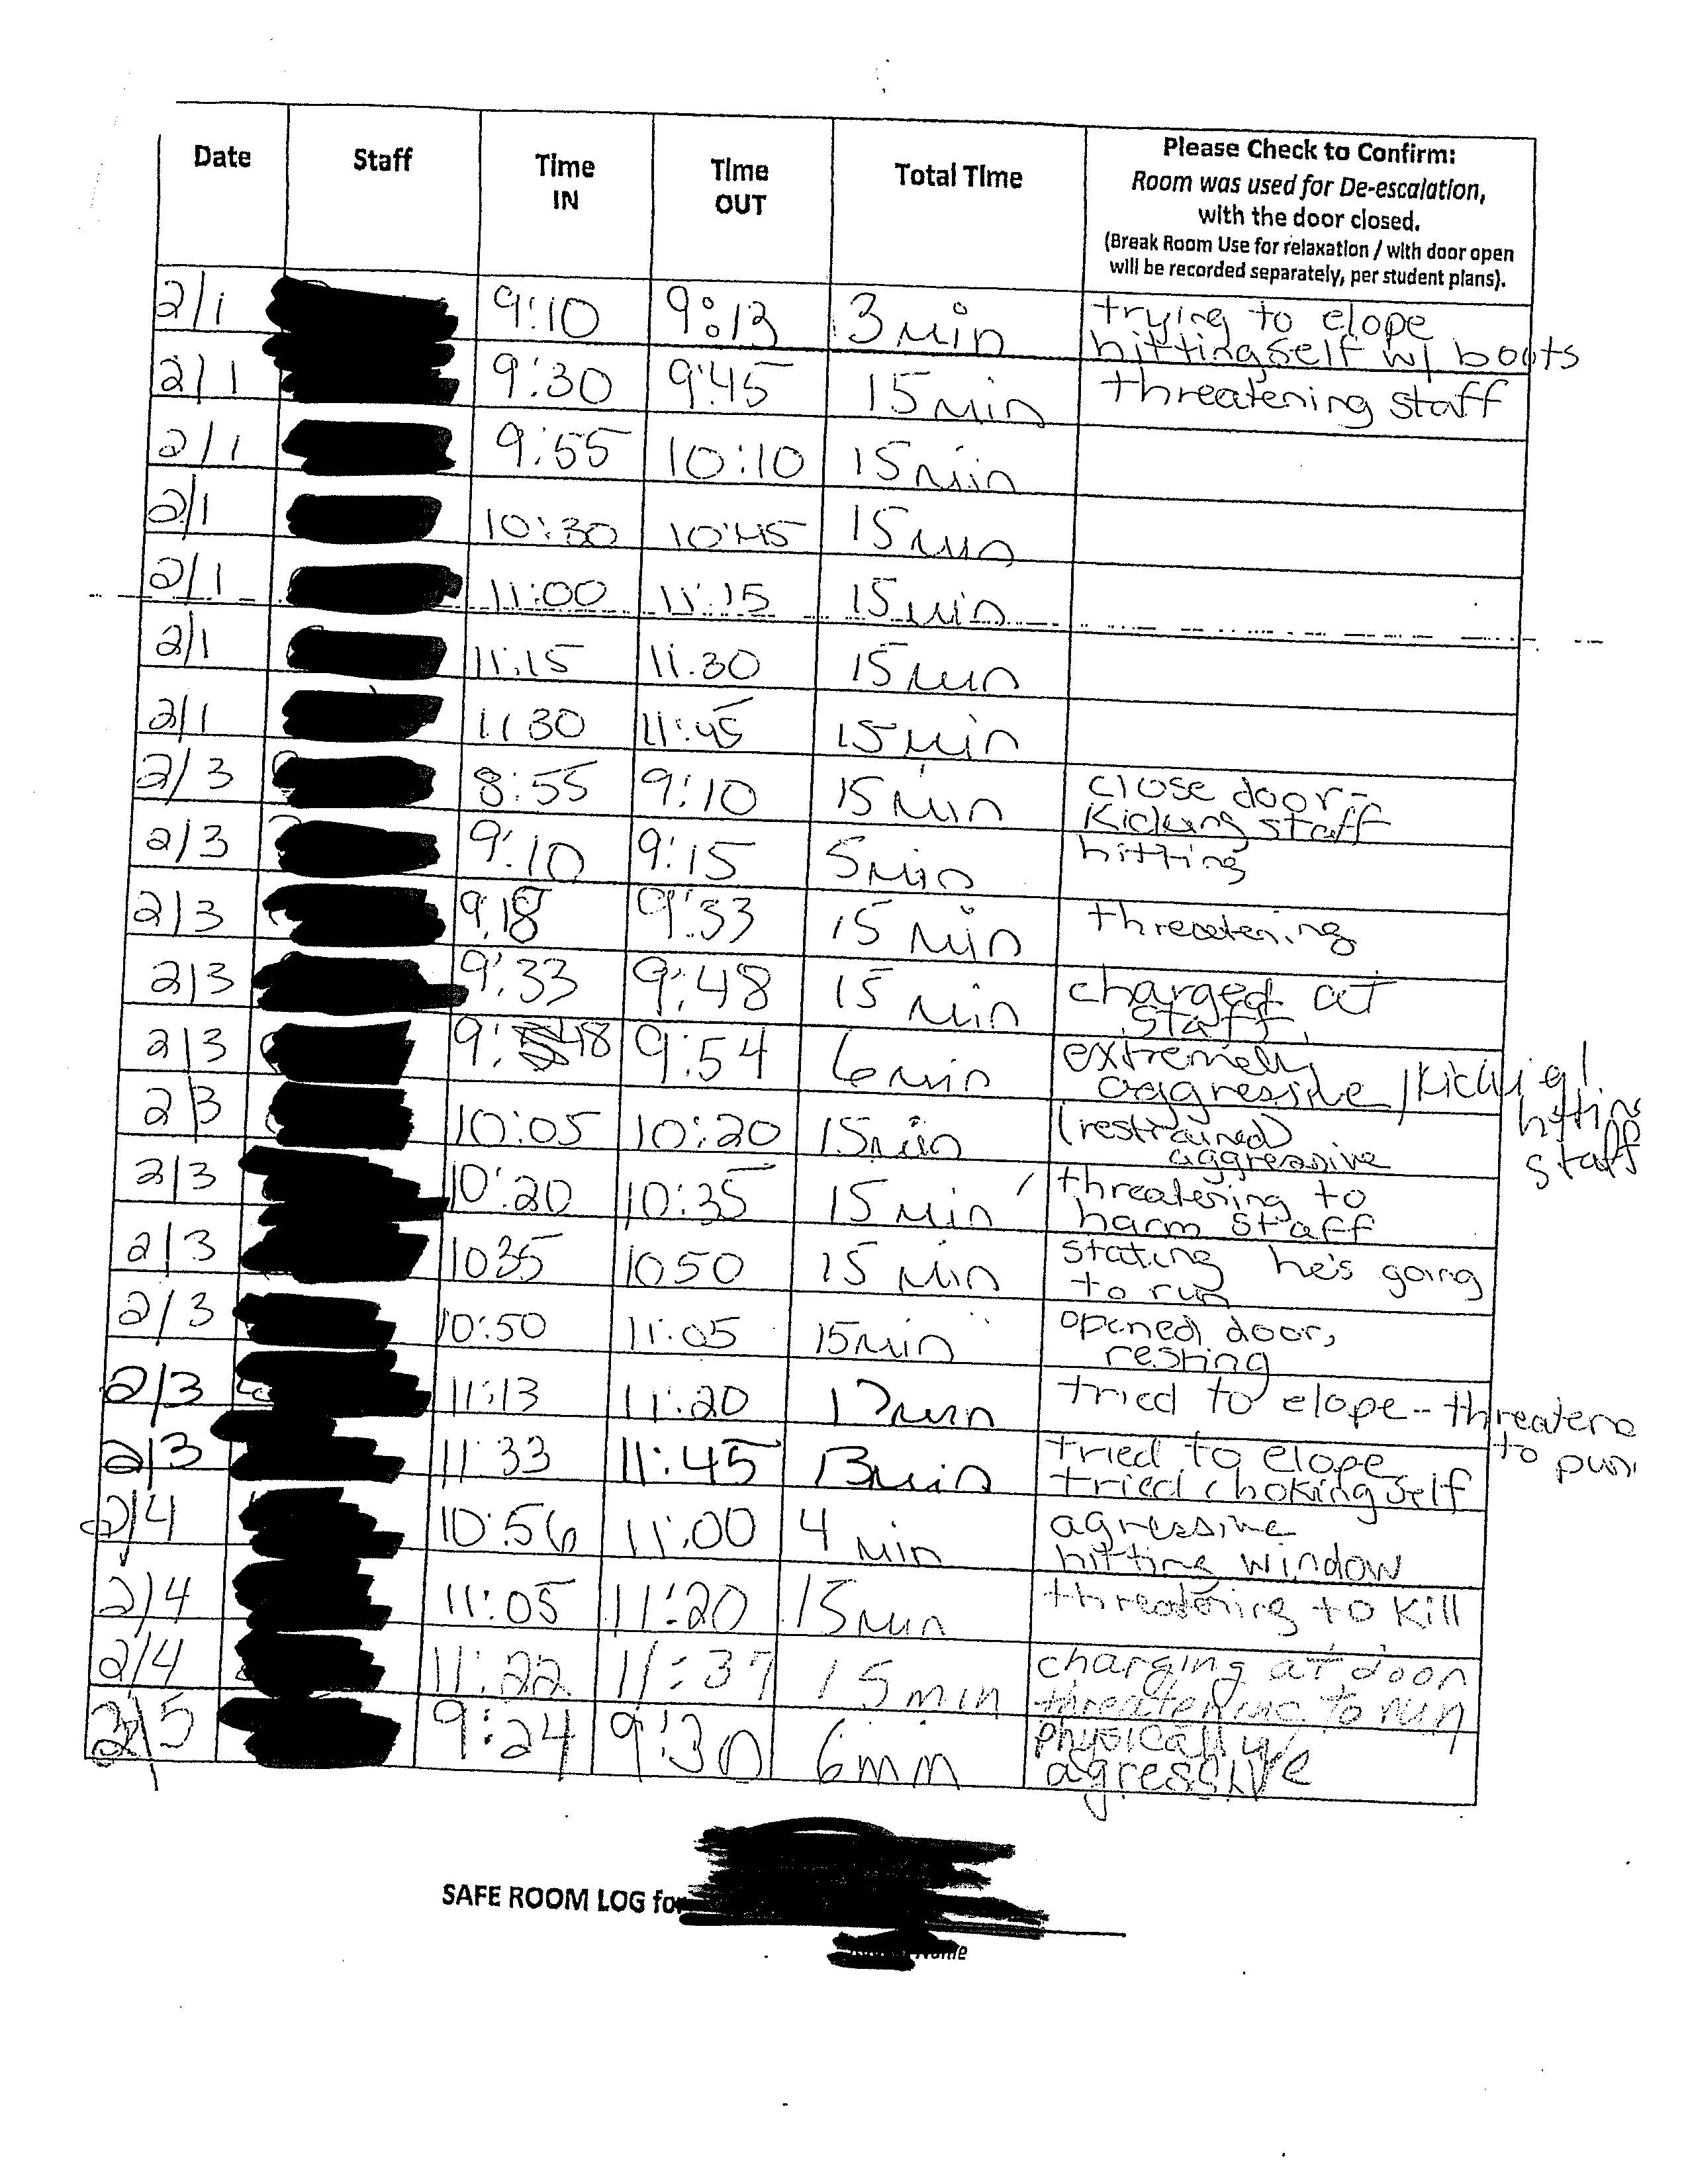 Date Staff Time IN Time OUT Total Time Please Check to Confirm:
Room was used for De-escalation,
with the door closed.
(Break Room Use for relaxation / with door open
will be recorded separately, per student plans).
2/1 9:10 9:13 3 min trying to elope
hitting self w/ boots
2/1 9:30 9:45 15 min threatening staff
2/1 9:55 10:10 15 min
2/1 10:30 10:45 15 min
2/1 11:00 11:15 15 min
2/1 11:15 11:30 15 min
2/1 11:30 11:45 15 min
2/3 8:55 9:10 15 min close door-
kicking staff
2/3 9:10 9:15 5 min hitting
2/3 9:18 9:33 15 min threatening
2/3 9:33 9:48 15 min charged at
staff
2/3 9:48 9:54 6 min extremely
aggressive / kicking/
hitting
staff
2/3 10:05 10:20 15 min (restrained)
aggressive
2/3 10:20 10:35 15 min threatening to
harm staff
2/3 1035 1050 15 min stating he's going
to run
2/3 10:50 11:05 15 min opened door,
resting
2/3 11:13 11:20 min tried to elope--threatend
to
2/3 11:33 11:45 13 min tried to elope
tried choking self
2/4 10:56 11:00 4 min agressive
hitting window
2/4 11:05 11:20 15 min threatening to kill
2/4 11:22 11:37 15 min charging at door
threatening to run
2/5 9:24 9:30 6 min physically
agressive
SAFE ROOM LOG for
Name